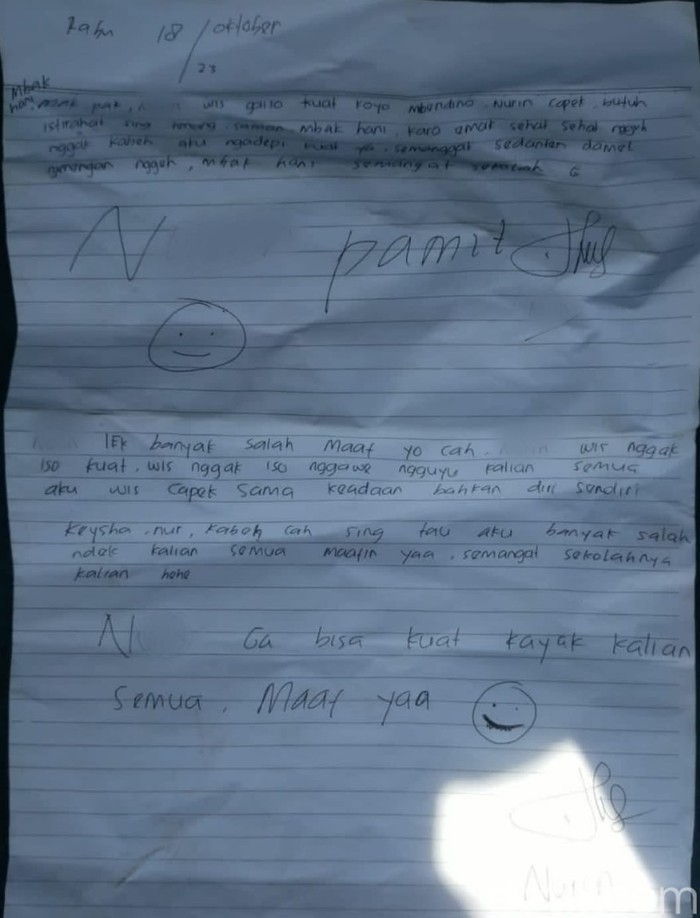 Rabu 18 / oktober
23
Mbak
hani, pak, wis gaiso kuat koyo mbendino. Nurin capek. butuh
istirahat sing tenang. saman, mbak hani, karo amak sehat sehat
nggeh kabeh aku ngadepi ya. semangat sedanten damel
nggeh, mbak hani semangat sekolah
N pamit
lek banyak salah Maaf yo cah. wis nggak
iso kuat. wis nggak iso nggawe ngguyu kalian semua
aku wis capek sama keadaan bahkan diri sendiri
Keysha, nur, kabeh cah sing tau aku banyak salah
ndek kalian semua maafin yaa. semangat sekolahnya
kalian hehe
N Ga bisa kuat kayak kalian
semua. Maaf yaa
Nurin
om